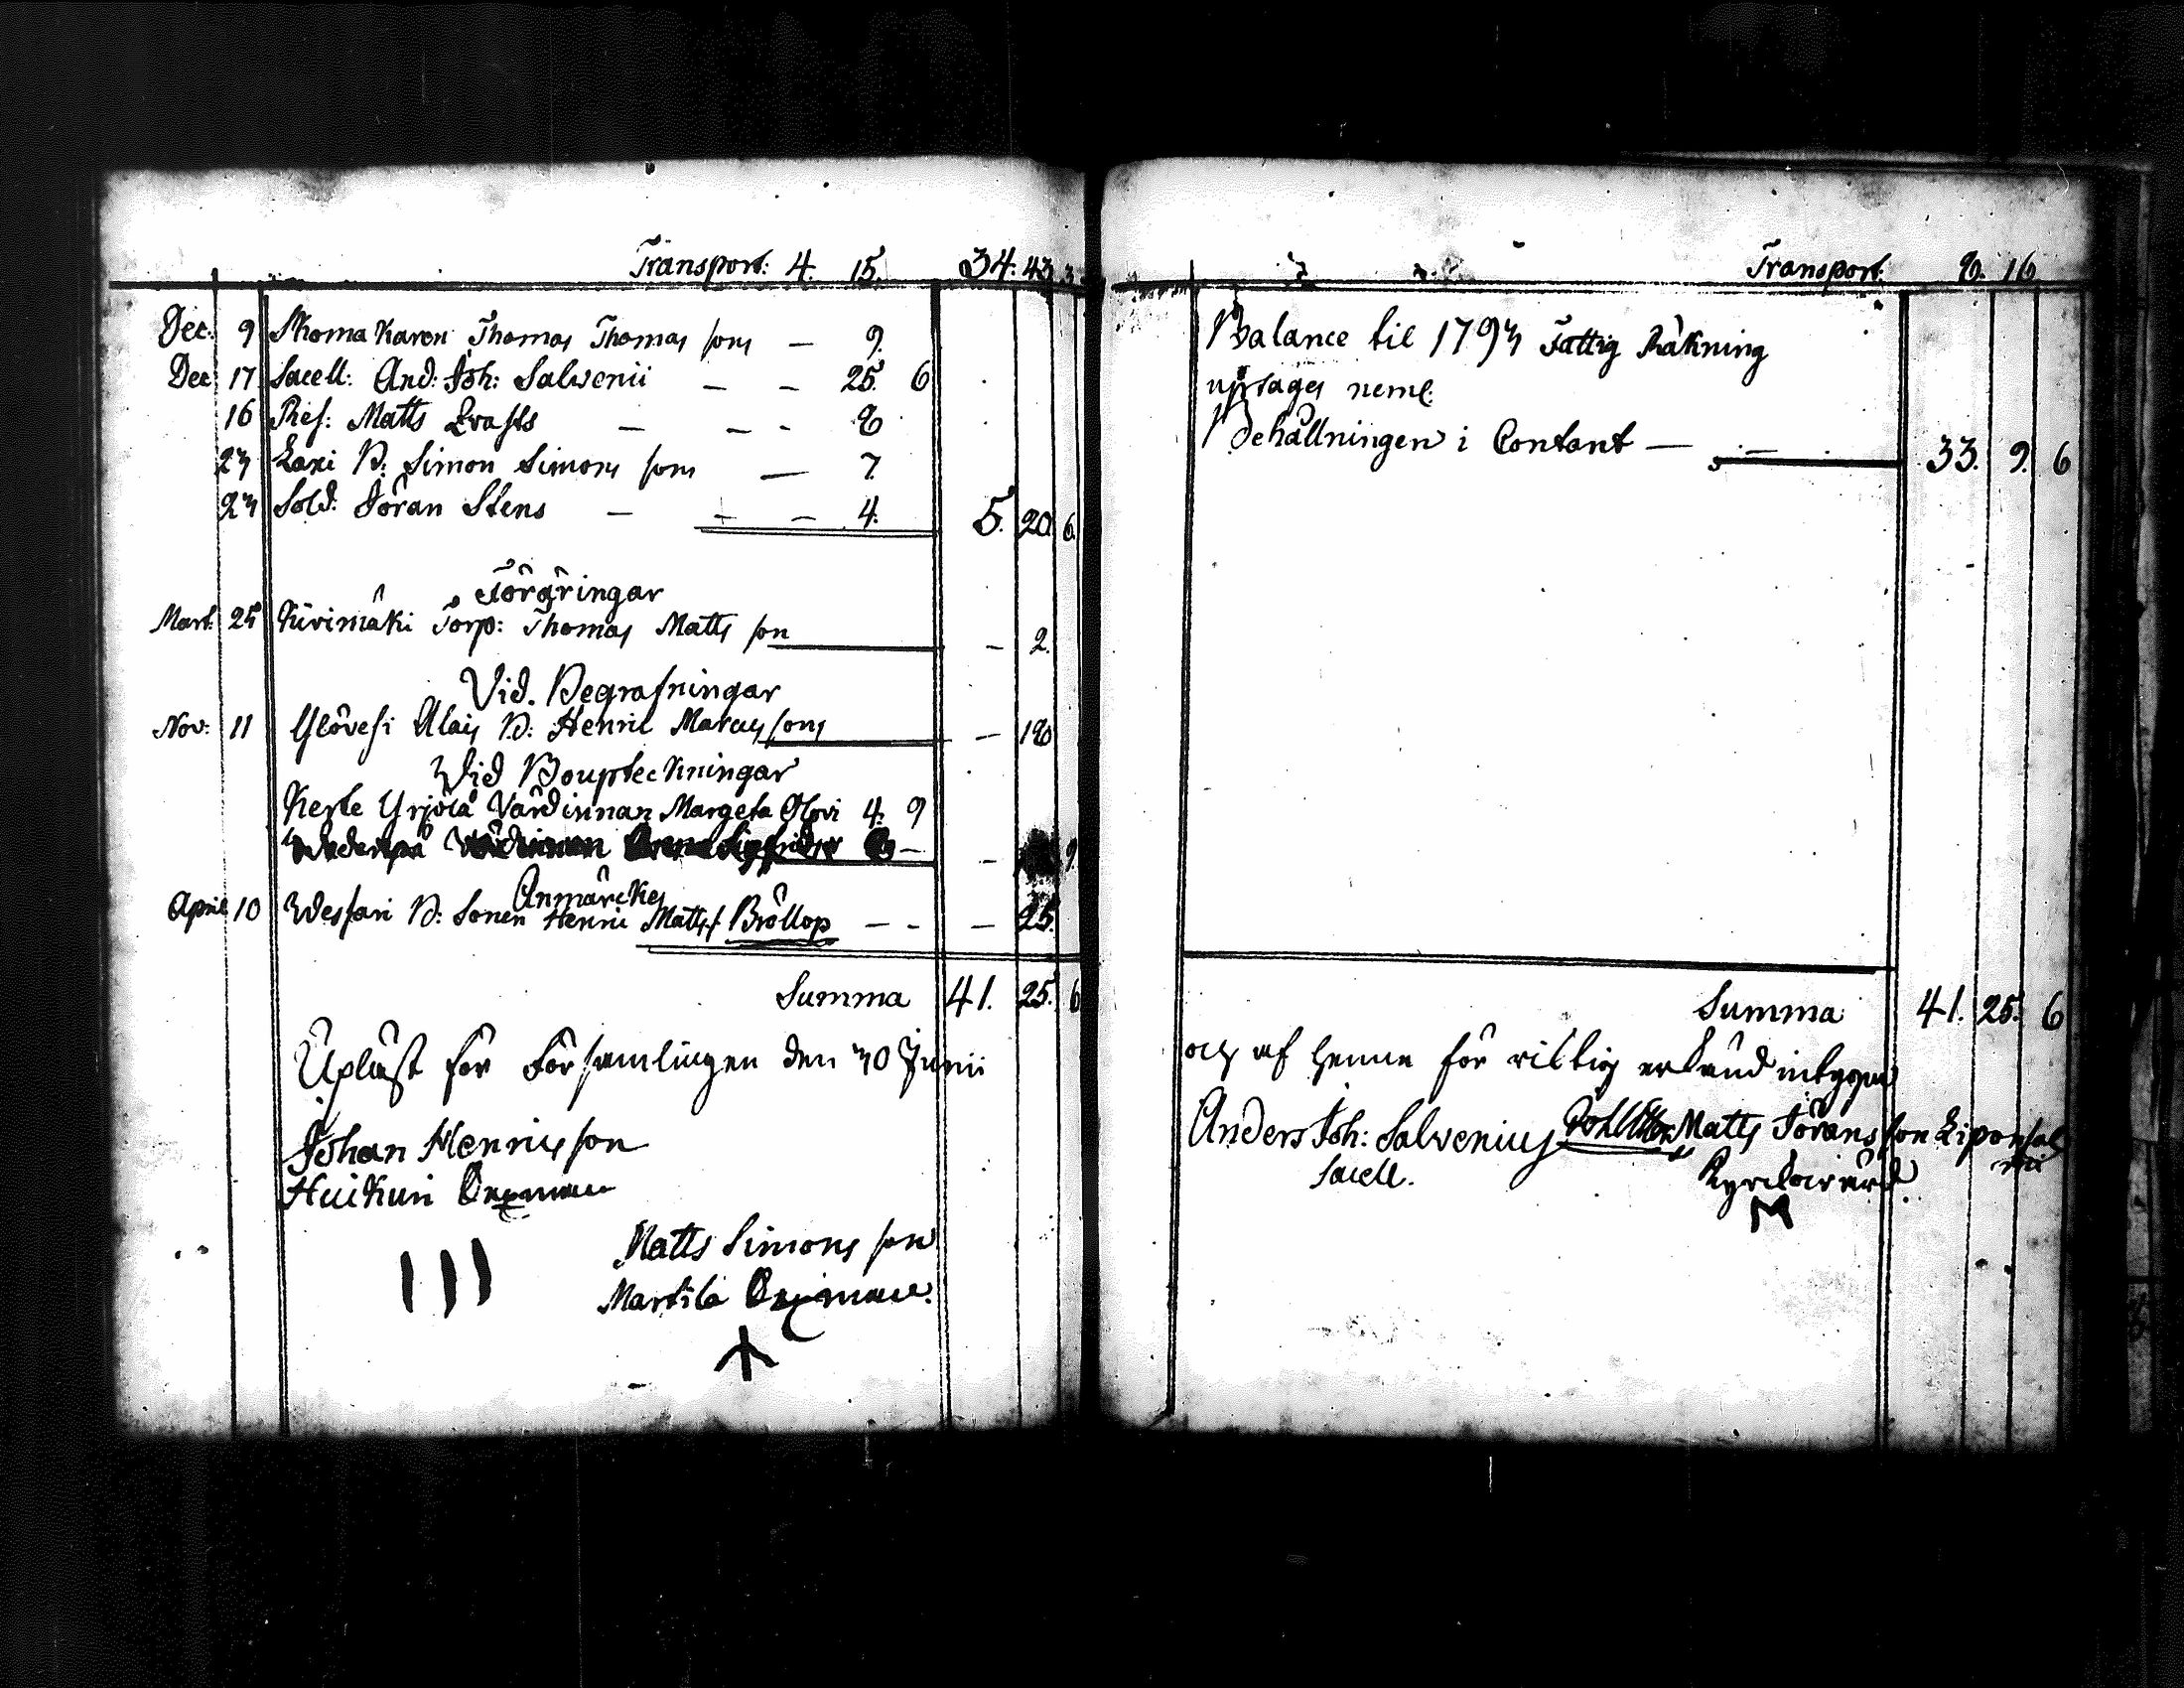 Transport: 4. 15. 34. 43. 3
Dec: 9 Skomakaren Thomas Thomas sons — 9.
Dec 17 Sacell: And: Joh: Salvenii — — 25. 6
16 Ref: Matts Qvasts — — - 8
23 Laxi B: Simon Simons sons — 7.
23 Sold: Jöran Stens — — — 4. 5. 20. 6.
Föräringar
Mart: 25 Kivimäki Torp: Thomas Matts son — 2.
Vid. Begrafningar
Nov: 11 Ylövesi Alais B: Henric Marcus sons — 18
Vid Boupteckningar
Yrjölä Värdinnan Margeta 4. 9
— 9.
Anmärckes
April 10 B: Sonen Henric Matts:s Bröllop — - — 25.
Summa 41. 25. 6
Upläst för Församlingen den 30 Junii
Johan Henrics son
Huikuri Sexman
Matts Simons son
Martila Sexman.
Transport: 8. 16
Balance til 1793 Fattig Räkning
uptages neml:
Behållningen i Contant — — 33. 9. 6
Summa 41. 25. 6
och af henne för riktig erkänd intygar
Anders Joh: Salvenius Matts Jörans son Liponsal
mi
Sacell. Kyrckovärd.
M